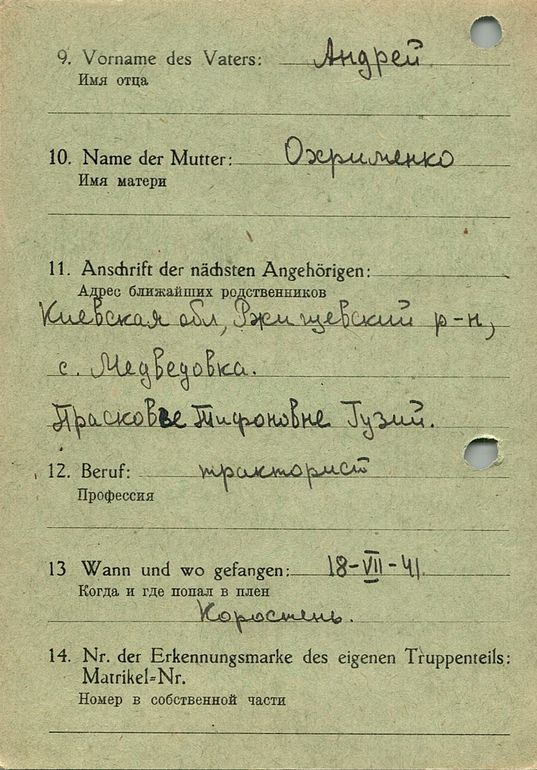 9. Vorname des Vaters: Андрей
Имя отца
10. Name der Mutter: Охрименко
Имя матери
11. Anschrift der nächsten Angehörigen:
Адрес ближайших родственников
Киевская обл, Ржищевский р-н,
с. Медведовка.
Прасковье Тифоновне Гузий.
12. Beruf: тракторист
Профессия
13 Wann und wo gefangen: 18-VII-41.
Когда и где попал в плен
Коростень.
14. Nr. der Erkennungsmarke des eigenen Truppenteils:
Matrikel-Nr.
Номер в собственной части